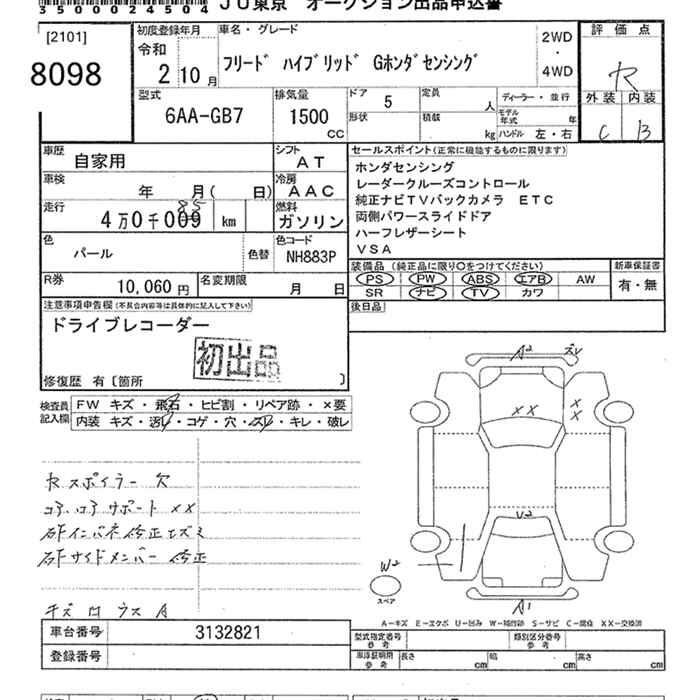 35000024504 JU東京 オークション出品申込書
[2101]
8098
初度登録年月
令和
2 10月
車名・グレード
フリード ハイブリッド Gホンダセンシング
2WD
・
4WD
評価点
R
外装 内装
C B
型式
6AA-GB7
排気量
1500
CC
ドア 5
形状
定員
人
積載
kg
ディーラー・並行
モデル年式 年
ハンドル 左・右
車歴
自家用
シフト
AT
車検
年 月( 日)
冷房
AAC
走行
4万0千009
85
km
燃料
ガソリン
色
パール
色替
色コード
NH883P
R券
10,060円
名変期限
月 日
セールスポイント(正常に機能するものに限ります)
ホンダセンシング
レーダークルーズコントロール
純正ナビTVバックカメラ ETC
両側パワースライドドア
ハーフレザーシート
VSA
装備品(純正品に限り○をつけてください)
PS PW ABS エアB AW
SR ナビ TV カワ
新車保証書
有・無
後日品
注意事項申告欄(不具合内容等は具体的に記入して下さい)
ドライブレコーダー
初出品
修復歴 有〔箇所 〕
検査員記入欄
FW キズ・飛石・ヒビ割・リペア跡・×要
内装 キズ・汚レ・コゲ・穴・スレ・キレ・破レ
Rスポイラー欠
コア、コアサポート××
修正
サイドメンバー 修正
A2
ズレ
××
×
×
V2
W2
スペア
A1
A-キズ E-エクボ U-凹み W-補修跡 S-サビ C-腐食 XX-交換済
車台番号 3132821
登録番号
型式指定番号
参考
類別区分番号
参考
車庫証明用
参考
長さ cm
幅 cm
高さ cm